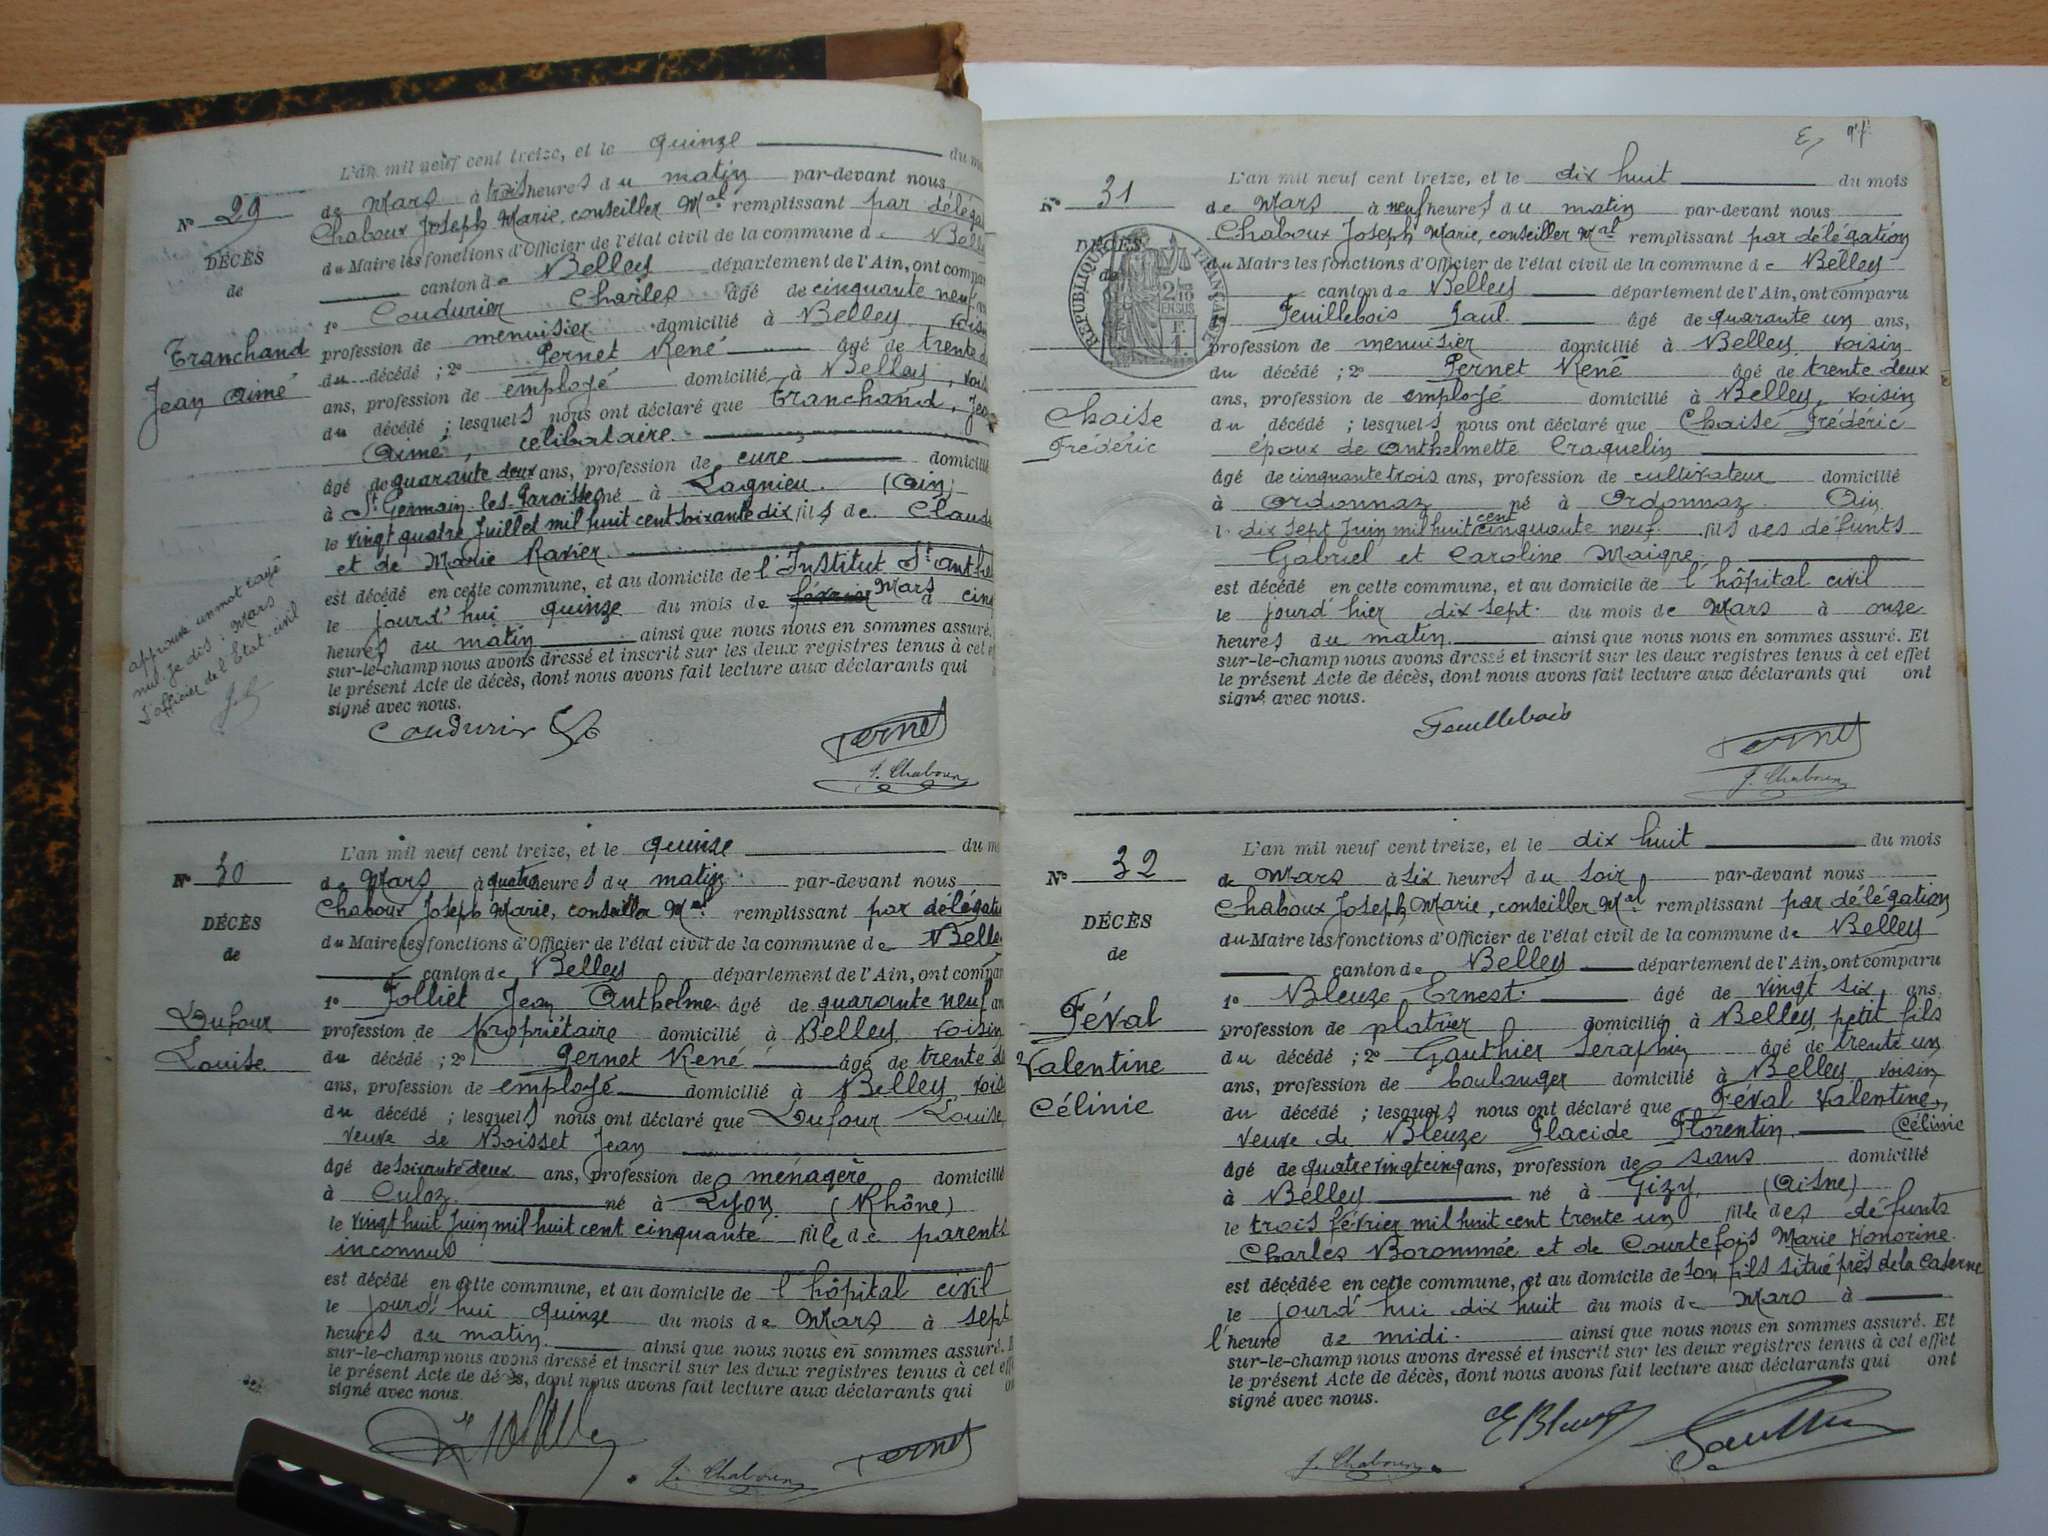 L'an mil neuf cent treize, et le quinze du
Nº 29
de Mars à trois heures du matin par-devant nous
Chaboux Joseph Marie, conseiller Mal remplissant par
DÉCÈS
du Maire les fonctions d'Officier de l'état civil de la commune de
de
canton de Belley département de l'Ain, ont
1º Coudurier Charles âgé de cinquante neuf
Tranchand
profession de menuisier domicilié à Belley,
Jean Aimé
du décédé ; 2º Pernet René âgé de trente
ans, profession de employé domicilié à Belley,
du décédé ; lesquels nous ont déclaré que Tranchand,
Aimé, célibataire.
âgé de quarante deux ans, profession de cure
à St Germain-les-Paroisses né à Lagnieu. (Ain)
le vingt quatre Juillet mil huit cent soixante dix fils de
et de Marie Ravier.
est décédé en cette commune, et au domicile de l'Institut St
approuvé un mot rayé
nul. Je dis : Mars
L'officier de l'Etat-civil
le jourd'hui quinze du mois de février Mars à
heures du matin ainsi que nous nous en sommes assuré.
sur-le-champ nous avons dressé et inscrit sur les deux registres tenus à cet
le présent Acte de décès, dont nous avons fait lecture aux déclarants qui
signé avec nous.
Pernet
J. Chaboux
L'an mil neuf cent treize, et le quinze du
Nº 30
de Mars à quatre heures du matin par-devant nous
Chaboux Joseph Marie, conseiller Mal remplissant par
DÉCÈS
du Maire les fonctions d'Officier de l'état civil de la commune de
de
canton de Belley département de l'Ain, ont
1º Jolliet Jean Anthelme âgé de quarante neuf
Dufour
profession de Propriétaire domicilié à Belley, voisin
Louise
du décédé ; 2º Pernet René âgé de trente
ans, profession de employé domicilié à Belley,
du décédé ; lesquels nous ont déclaré que Dufour Louise,
veuve de Boisset Jean
âgé de soixante deux ans, profession de ménagère domicilié
à Culoz né à Lyon (Rhône)
le vingt huit Juin mil huit cent cinquante fille de parents
inconnus
est décédé en cette commune, et au domicile de l'hôpital civil
le jourd'hui quinze du mois de Mars à sept
heures du matin. ainsi que nous nous en sommes assuré.
sur-le-champ nous avons dressé et inscrit sur les deux registres tenus à cet
le présent Acte de décès, dont nous avons fait lecture aux déclarants qui
signé avec nous.
J. Chaboux
Pernet
L'an mil neuf cent treize, et le dix huit du mois
Nº 31
de Mars à neuf heures du matin par-devant nous
Chaboux Joseph Marie, conseiller Mal remplissant par délégation
DÉCÈS
de
RÉPUBLIQUE FRANÇAISE
2/10 EN SUS
1 F.
du Maire les fonctions d'Officier de l'état civil de la commune de Belley
canton de Belley département de l'Ain, ont comparu
1º Feuillebois Paul âgé de quarante un ans,
profession de menuisier domicilié à Belley, voisin
du décédé ; 2º Pernet René âgé de trente deux
ans, profession de employé domicilié à Belley, voisin
Chaise
Frédéric
du décédé ; lesquels nous ont déclaré que Chaise Frédéric
époux de Anthelmette Craquelin
âgé de cinquante trois ans, profession de cultivateur domicilié
à Ordonnaz né à Ordonnaz Ain
le dix sept Juin mil huit cent cinquante neuf. fils des défunts
Gabriel et Caroline Maigre
est décédé en cette commune, et au domicile de l'hôpital civil
le jourd'hier dix sept. du mois de Mars à onze
heures du matin. ainsi que nous nous en sommes assuré. Et
sur-le-champ nous avons dressé et inscrit sur les deux registres tenus à cet effet
le présent Acte de décès, dont nous avons fait lecture aux déclarants qui ont
signé avec nous.
Feuillebois
Pernet
J. Chaboux
L'an mil neuf cent treize, et le dix huit du mois
Nº 32
de Mars à six heures du soir par-devant nous
Chaboux Joseph Marie, conseiller Mal remplissant par délégation
DÉCÈS
du Maire les fonctions d'Officier de l'état civil de la commune de Belley
de
canton de Belley département de l'Ain, ont comparu
1º Bleuze Ernest. âgé de vingt six ans.
Féval
Valentine
Célinie
profession de platrier domicilié à Belley, petit fils
du décédé ; 2º Gauthier Seraphin âgé de trente un
ans, profession de boulanger domicilié à Belley, voisin
du décédé ; lesquels nous ont déclaré que Féval Valentine,
veuve de Bleuze Placide Florentin. Célinie
âgé de quatre vingt cinq ans, profession de sans domicilié
à Belley né à Gizy, (Aisne)
le trois février mil huit cent trente un fille des défunts
Charles Borommée et de Courtefois Marie Honorine.
est décédée en cette commune, et au domicile de son fils situé près de la Caserne
le jourd'hui dix huit du mois de Mars à
l'heure de midi. ainsi que nous nous en sommes assuré. Et
sur-le-champ nous avons dressé et inscrit sur les deux registres tenus à cet effet
le présent Acte de décès, dont nous avons fait lecture aux déclarants qui ont
signé avec nous.
J. Chaboux